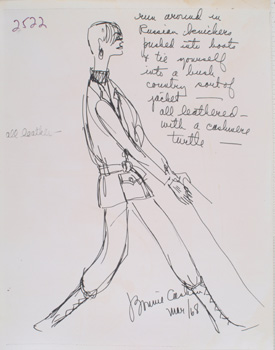 2522
run around in
Russian knickers
pushed into boots
& tie yourself
into a bush
country sort of
jacket —
all leathered —
with a cashmere
turtle —
all leather —
Bonnie Cashin
Mar/68